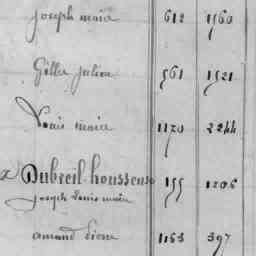 Joseph marie 612 1560
Gilles julien 561 1521
Louis marie 1170 2244
Dubreil houssense 155 1206
Joseph Louis marie
amand 1163 397